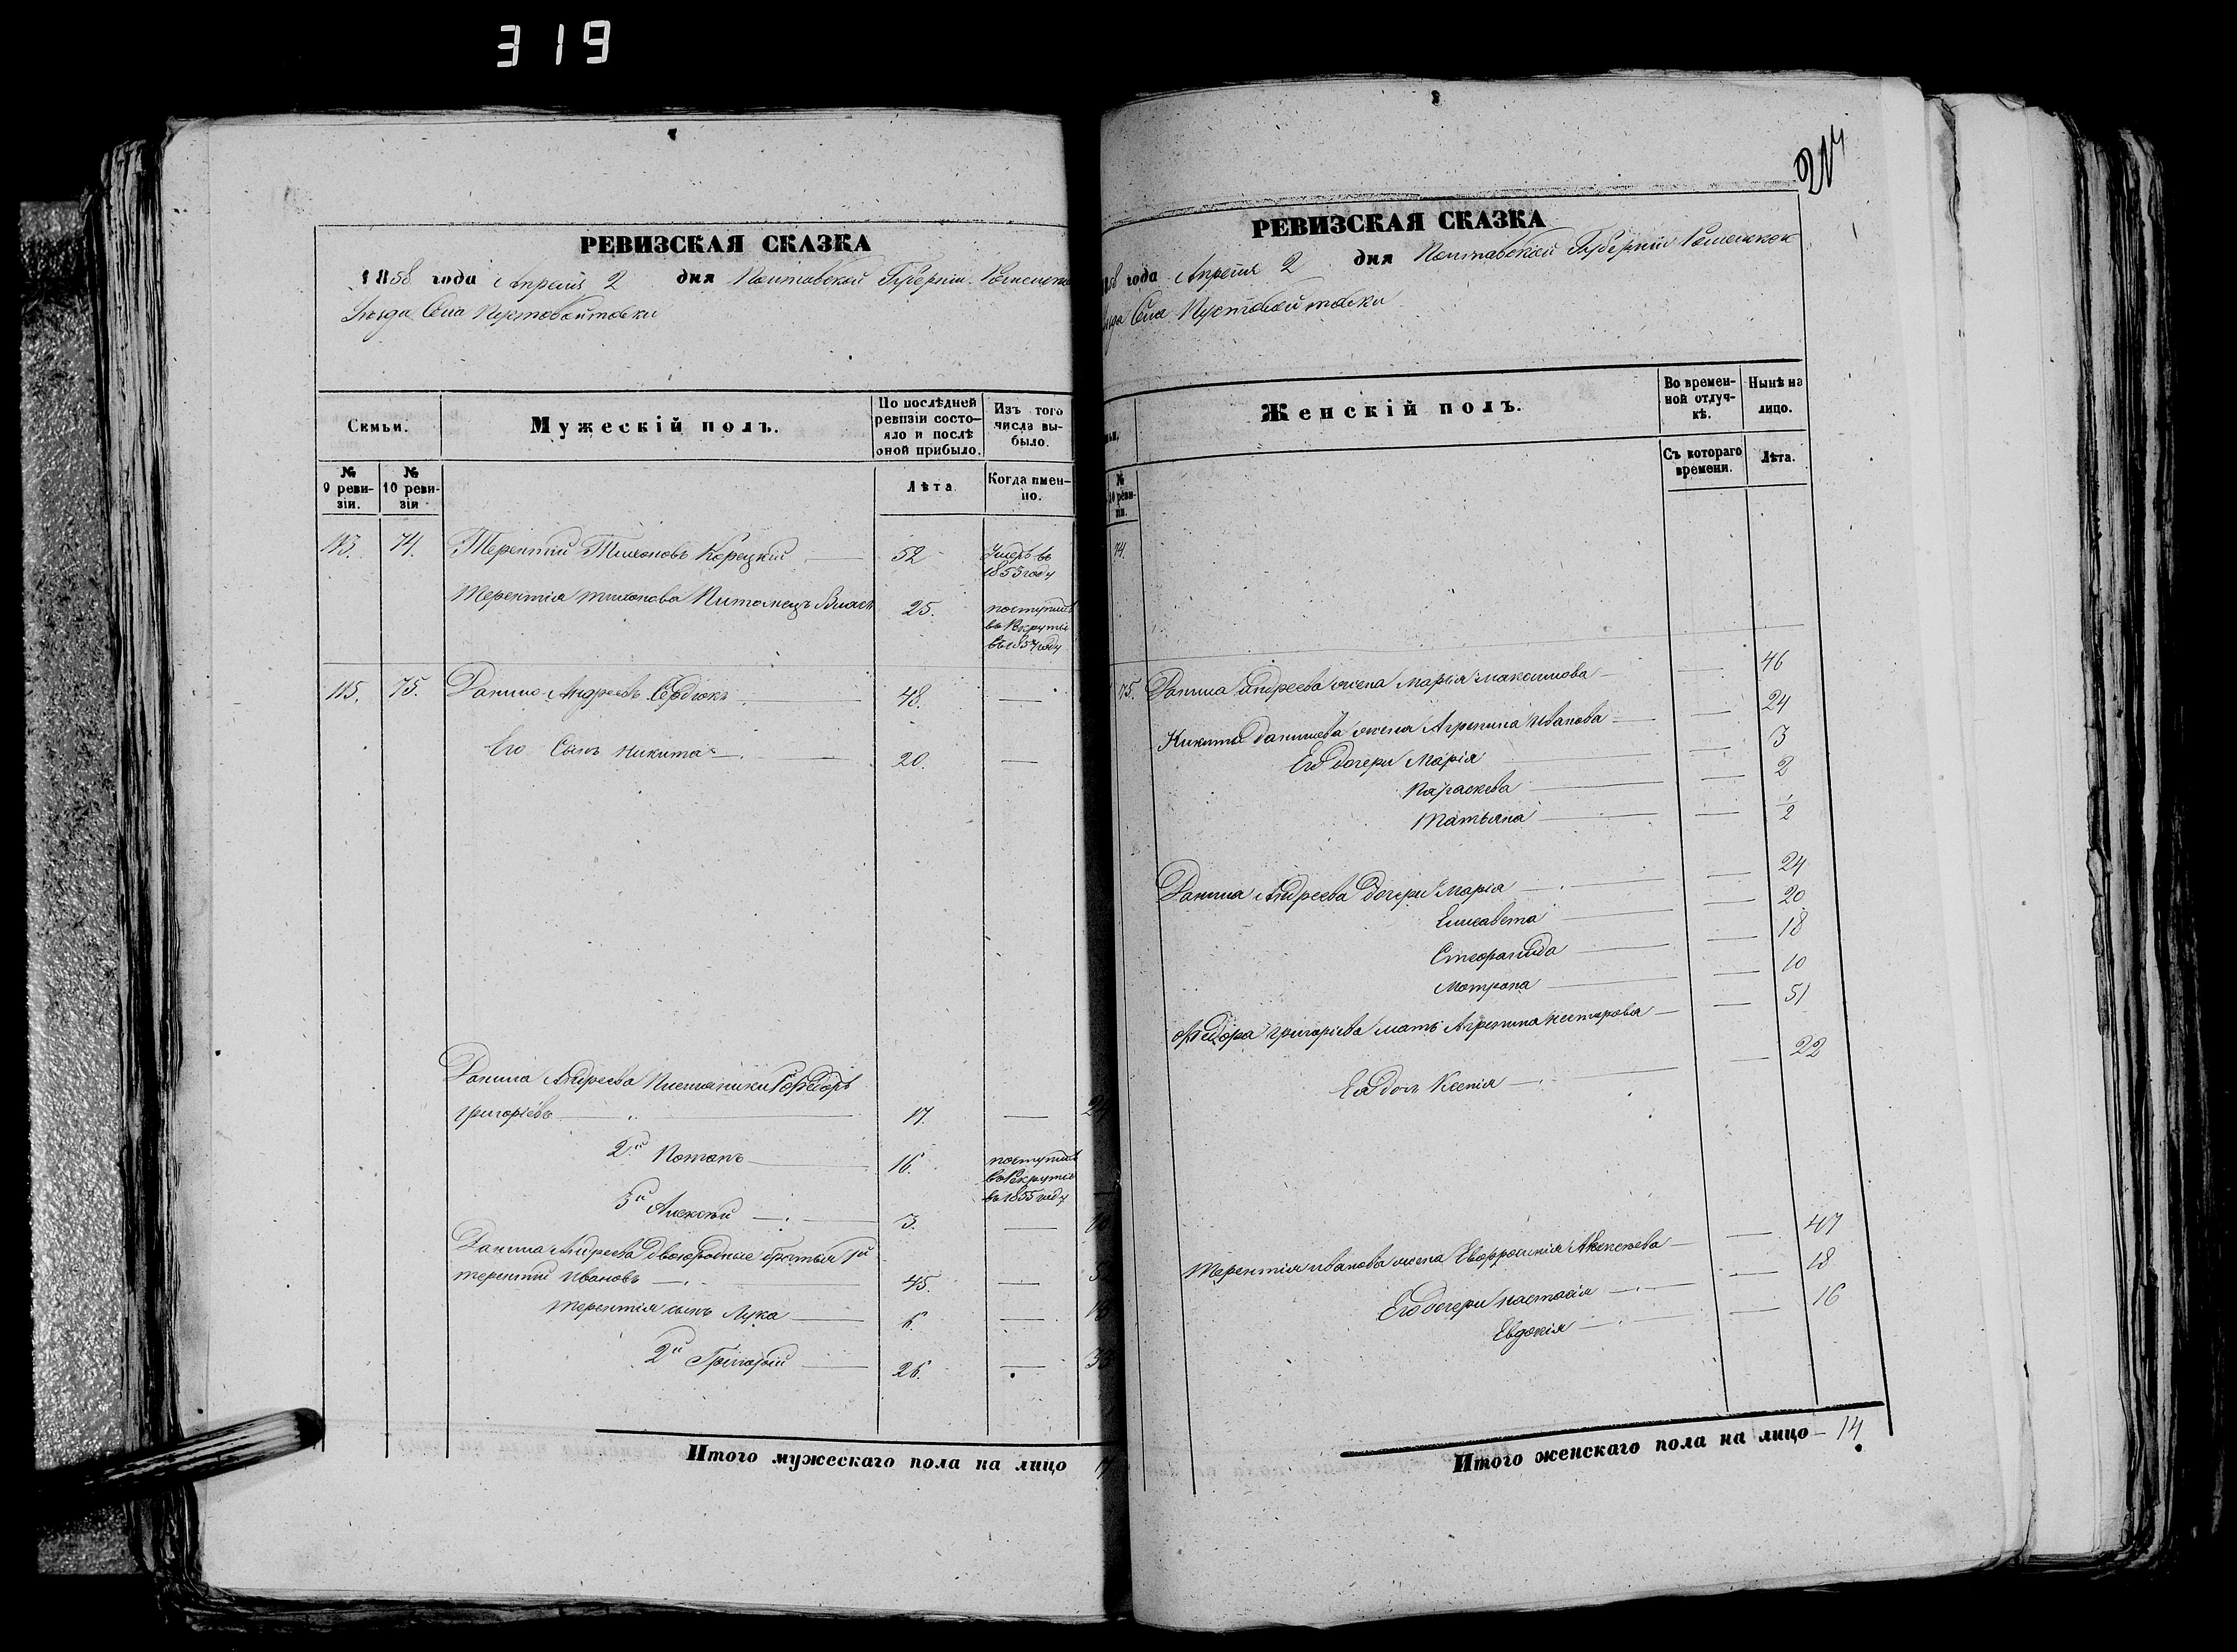 319
РЕВИЗСКАЯ СКАЗКА
1858 года Апреля 2 дня Полтавской Губерніи
Уезда Села Пустовойтовки
Семьи.
Мужескій полъ.
По послѣдней ревизіи состо-яло и послѣ оной прибыло.
Изъ того числа вы-было.
№ 9 реви-зіи.
№ 10 реви-зіи
Лѣта
Когда имен-но.
74. Терентій Тихоновъ Корецкій 52 Умеръ въ
1853 году
Терентія Тихонова Питомецъ 25. поступилъ
въ
въ 1857 году
115. 75. Данило Андреевъ Сердюкъ 48.
Его Сынъ Никита 20.
Данила Андреева Племяники Федоръ
Григоріевъ 17.
2й Потапъ 16. поступилъ
въ Рекруты
въ 1855 году
3й Алексѣй 3.
Данила Андреева двоюродные братья 1й
Терентій Ивановъ 45.
Терентія сынъ Лука 6.
2й Григорій 26.
Итого мужескаго пола на лицо
214
РЕВИЗСКАЯ СКАЗКА
года Апреля 2 дня Полтавской Губерніи Роменскаго
Села Пустовойтовки
Женскій полъ.
Во времен-ной отлуч-кѣ.
Нынѣ на лицо.
Съ котораго времени.
Лѣта.
74.
75. Данила Андреева жена Марія Максимова 46
Никиты Данилева жена Агрепина Иванова 24
Его дочери Марія 3
Параскева 2
Татьяна 1/2
Данила Андреева дочери Марія 24
Елисавета 20
18
Мотрона 10
Федора Григоріева мать Агрепина Нестерова 51
Ея дочь Ксенія 22
Терентія Иванова жена Евфросинія 47
Его дочери Настасія 18
Евдокія 16
Итого женскаго пола на лицо 14